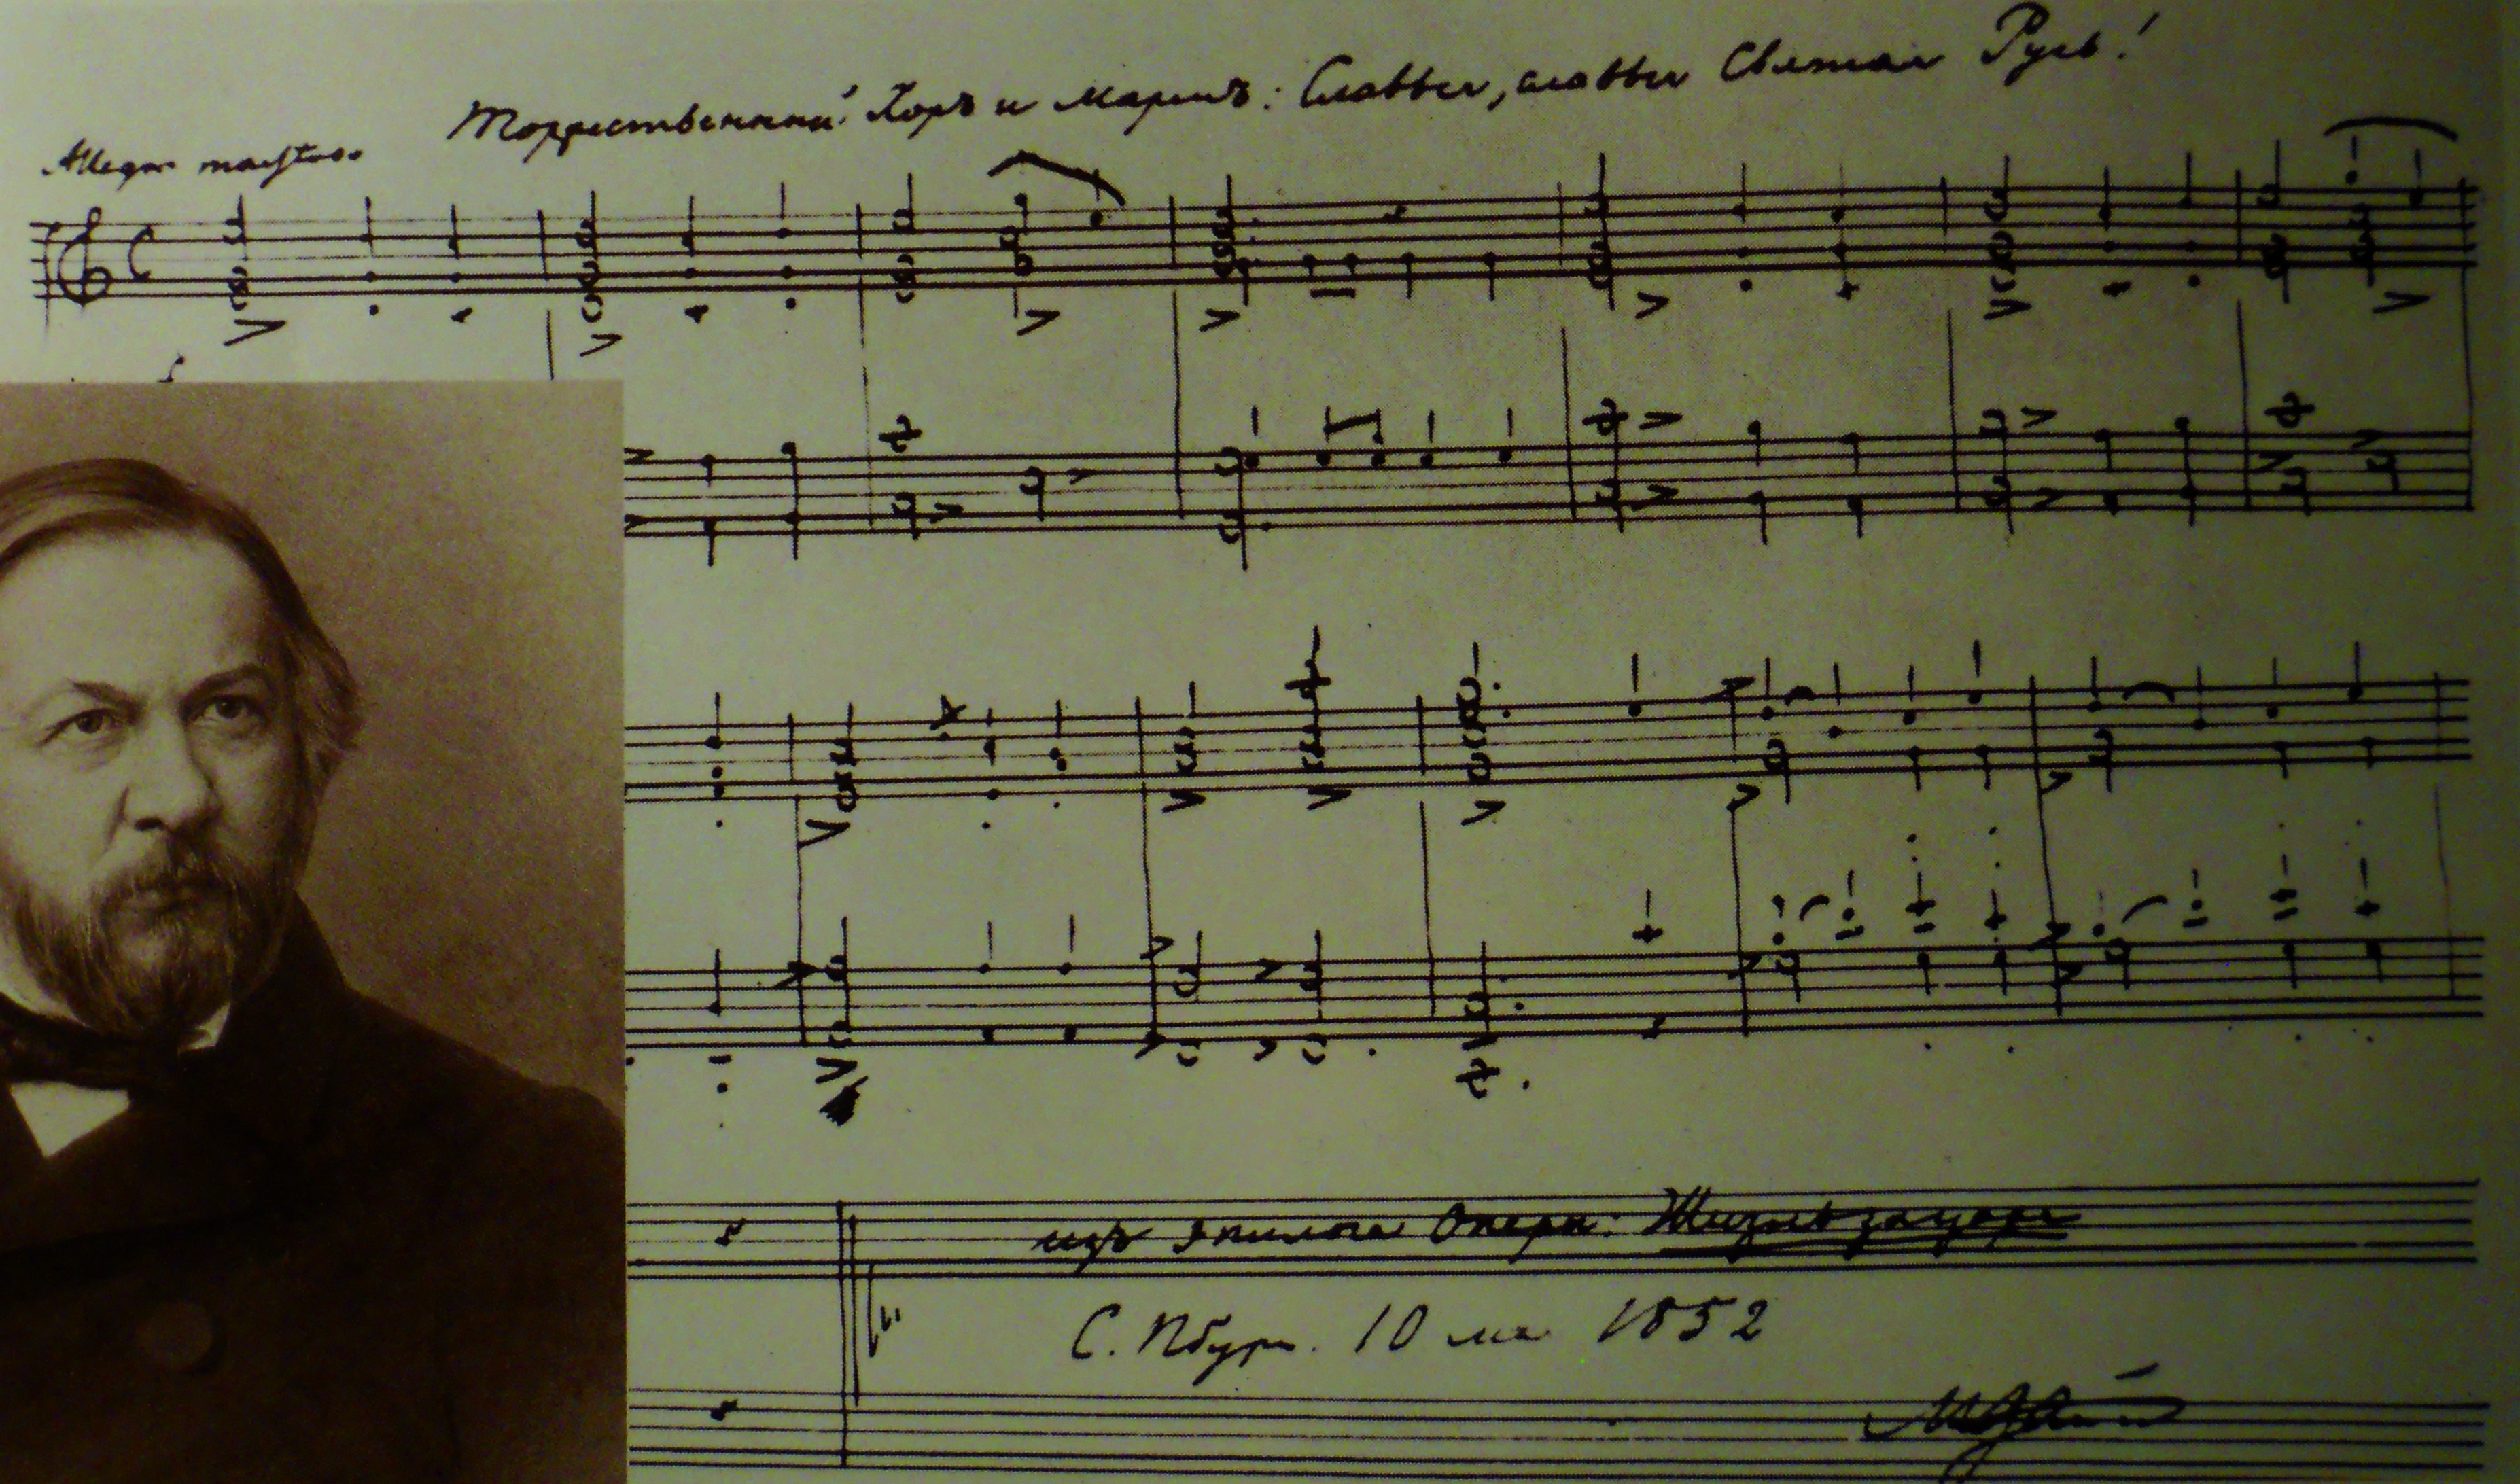 Торжественный Хоръ и Маршъ: Славься, славься Святая Русь!
Allegro maestoso
изъ эпилога Оперы: Жизнь за царя
С. Пбург. 10 мая 1852